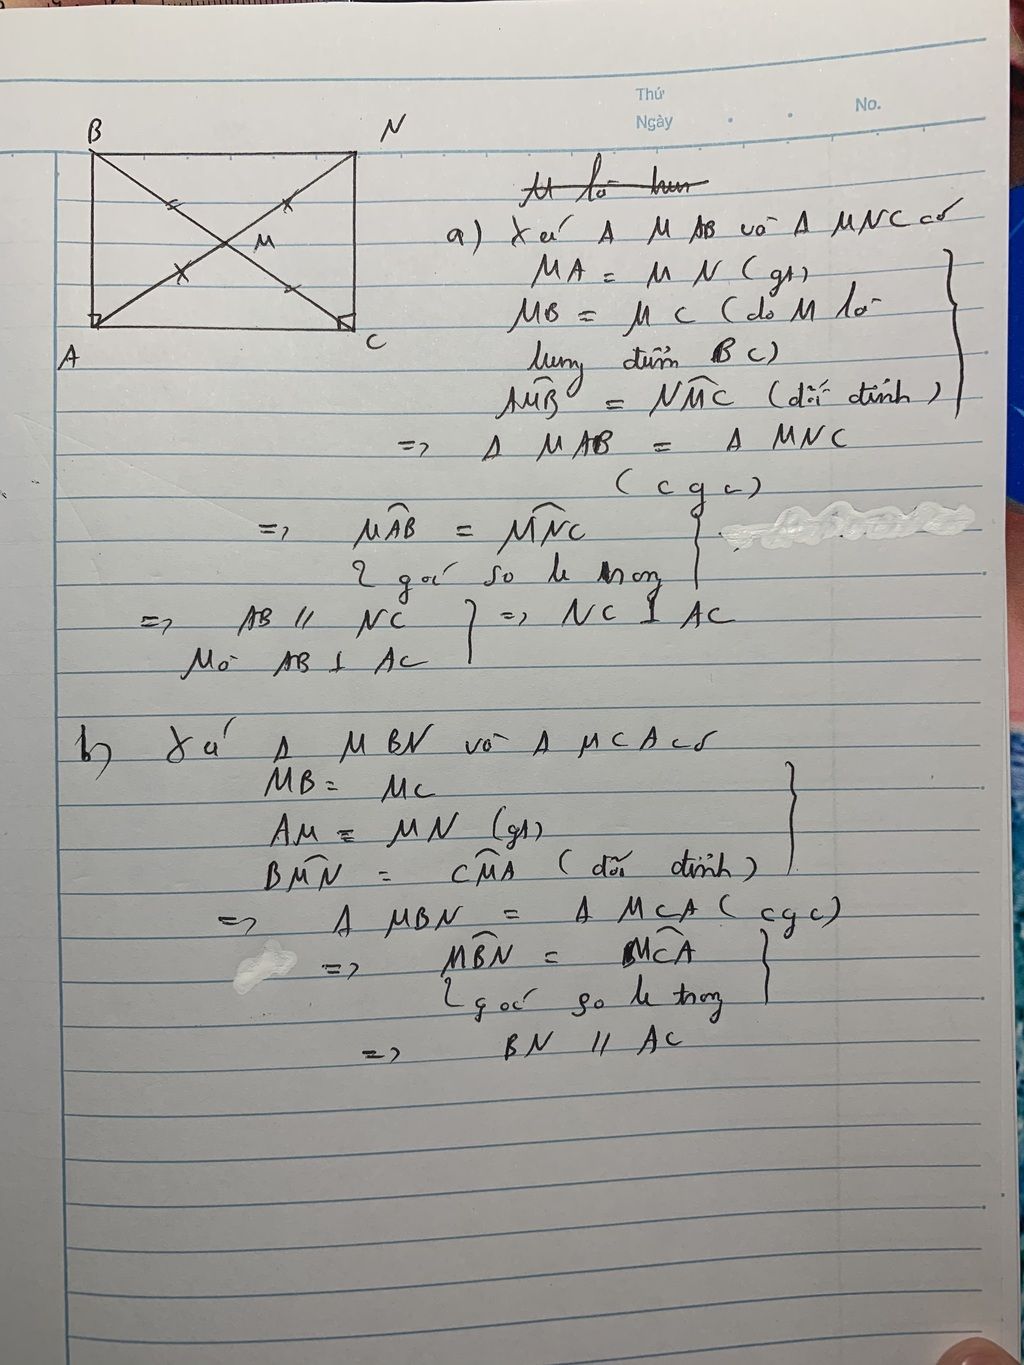 Thứ
Ngày
No.
B
N
M
A
C
M là trun
a) Xét Δ MAB và Δ MNC có
MA = MN (gt)
MB = MC (do M là
trung điểm BC)
AM̂B = NM̂C (đối đỉnh)
=> Δ MAB = Δ MNC
(cgc)
=> MÂB = MN̂C
2 góc so le trong
=> AB // NC => NC ⊥ AC
Mà AB ⊥ AC
b) Xét Δ MBN và Δ MCA có
MB = MC
AM = MN (gt)
BM̂N = CM̂A (đối đỉnh)
=> Δ MBN = Δ MCA (cgc)
=> MB̂N = MĈA
2 góc so le trong
=> BN // AC